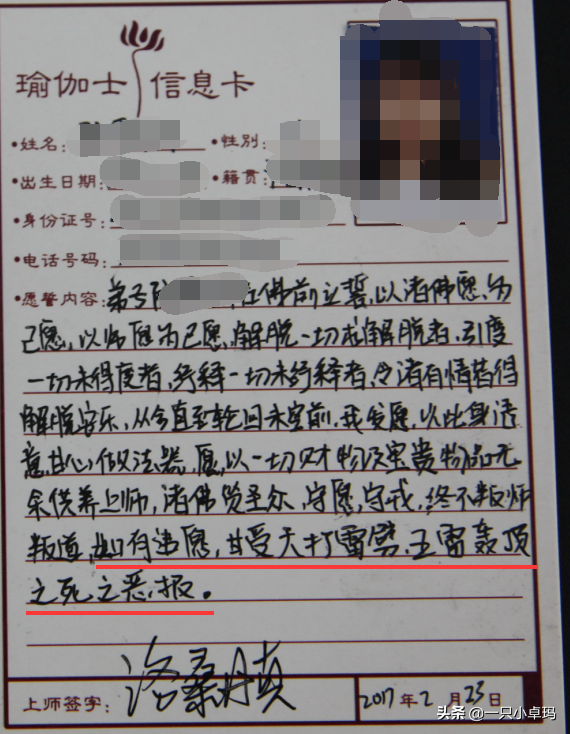 瑜伽士 信息卡
·姓名: ·性别:
·出生日期: ·籍贯:
·身份证号:
·电话号码:
·愿誓内容: 弟子 在佛前立誓,以诸佛愿为
己愿,以师愿为己愿,解脱一切未解脱者,引度
一切未得度者,终释一切未终释者,令诸有情皆得
解脱安乐,从今直至轮回未空前,我发愿,以此身语
意,甘心做法器,愿以一切财物及宝贵物品无
余供养上师,诸佛贤圣众,守愿,守戒,终不叛师
叛道,如有违愿,甘受天打雷劈,五雷轰顶
之死之恶报。
上师签字: 洛桑丹真 2017年2月23日
头条 @一只小卓玛